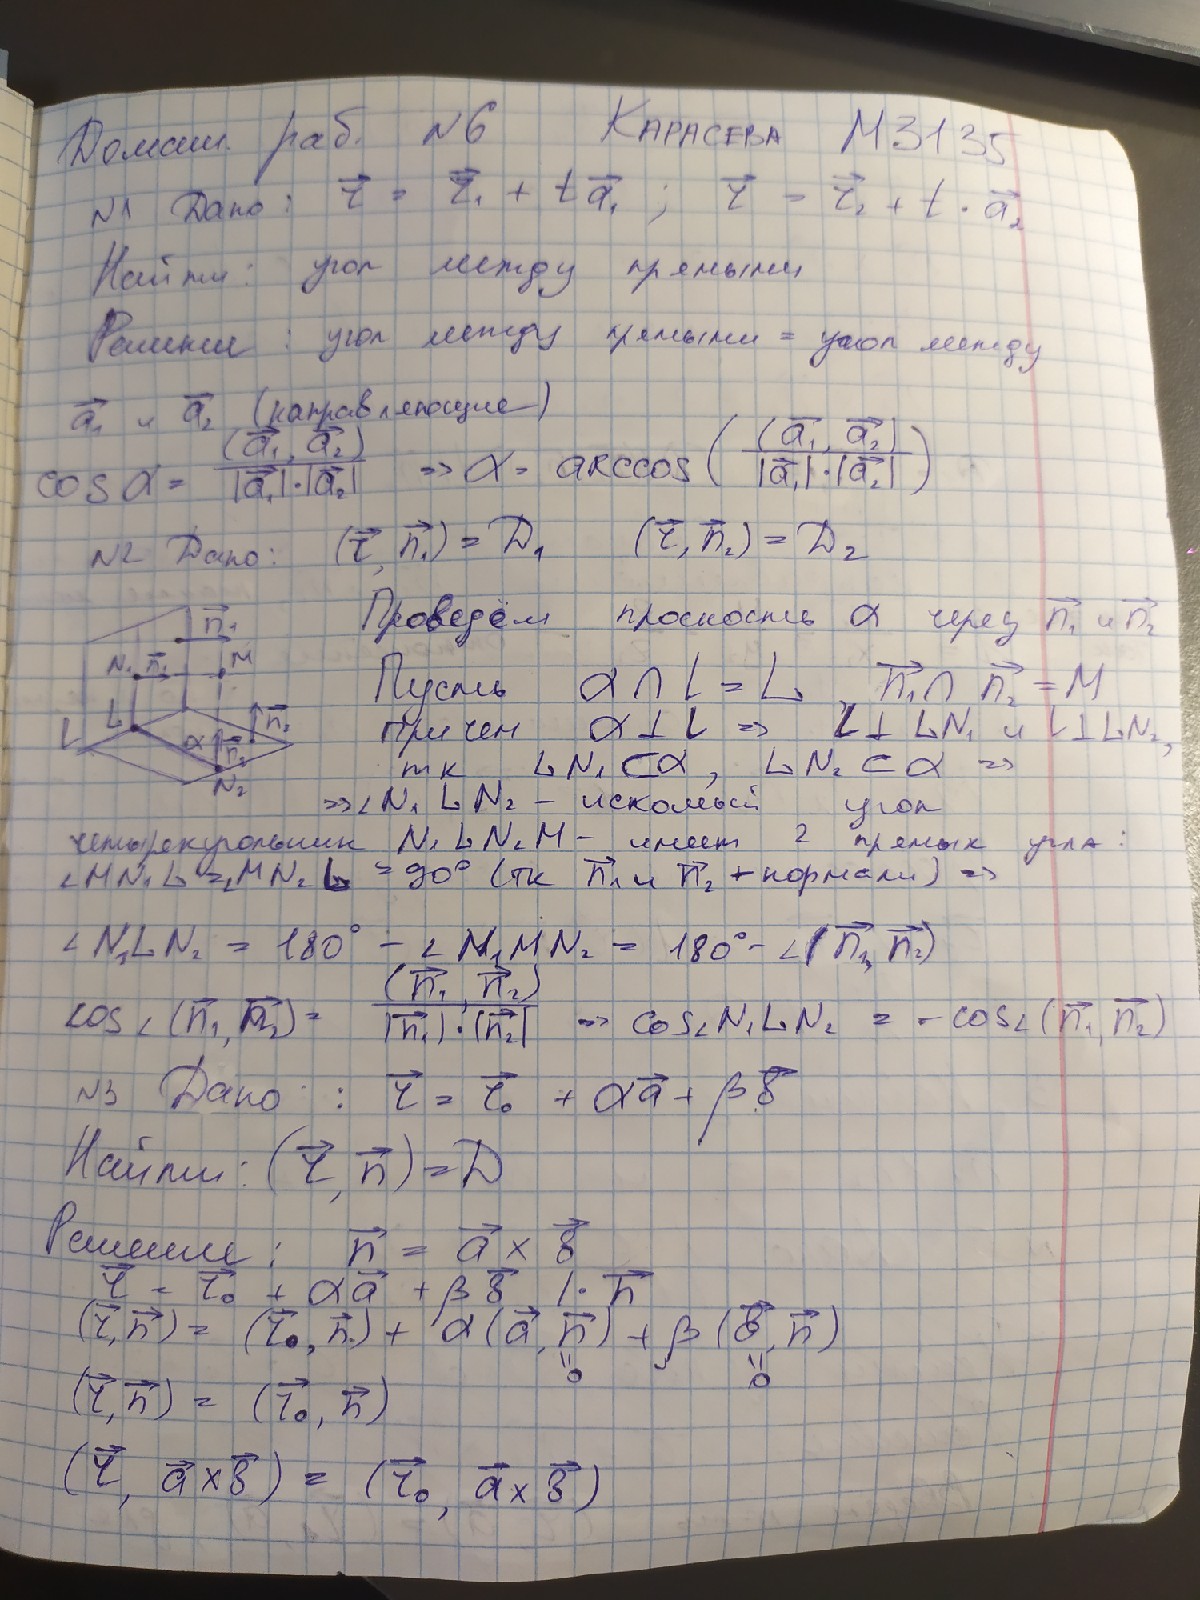 Домаш. раб. №6 КАРАСЕВА М3135
№1 Дано: r⃗ = r⃗₁ + t a⃗₁ ; r⃗ = r⃗₂ + t · a⃗₂
Найти: угол между прямыми
Решение: угол между прямыми = угол между
a⃗₁ и a⃗₂ (направляющие)
cos α = (a⃗₁, a⃗₂) / |a⃗₁|·|a⃗₂| => α = arccos( (a⃗₁, a⃗₂) / |a⃗₁|·|a⃗₂| )
№2 Дано: (r⃗, n⃗₁) = D₁ (r⃗, n⃗₂) = D₂
Проведём проскость α через n⃗₁ и n⃗₂
Пусть α ∩ l = L, n⃗₁ ∩ n⃗₂ = M
причем α ⊥ l => l ⊥ LN₁ и l ⊥ LN₂,
тк LN₁ ⊂ α, LN₂ ⊂ α =>
=> ∠N₁LN₂ - искомый угол
n⃗₁
N₁ n⃗₁ M
L
l
α n⃗₂ n⃗₂
N₂
четырехугольник N₁LN₂M - имеет 2 прямых угла:
∠MN₁L = ∠MN₂L = 90° (тк n⃗₁ и n⃗₂ - нормали) =>
∠N₁LN₂ = 180° - ∠N₁MN₂ = 180° - ∠(n⃗₁, n⃗₂)
cos∠(n⃗₁, n⃗₂) = (n⃗₁, n⃗₂) / |n⃗₁|·|n⃗₂| => cos∠N₁LN₂ = -cos∠(n⃗₁, n⃗₂)
№3 Дано: r⃗ = r⃗₀ + αa⃗ + βb⃗
Найти: (r⃗, n⃗) = D
Решение: n⃗ = a⃗ × b⃗
r⃗ = r⃗₀ + αa⃗ + βb⃗ | · n⃗
(r⃗, n⃗) = (r⃗₀, n⃗) + α(a⃗, n⃗) + β(b⃗, n⃗)
"0 "0
(r⃗, n⃗) = (r⃗₀, n⃗)
(r⃗, a⃗ × b⃗) = (r⃗₀, a⃗ × b⃗)